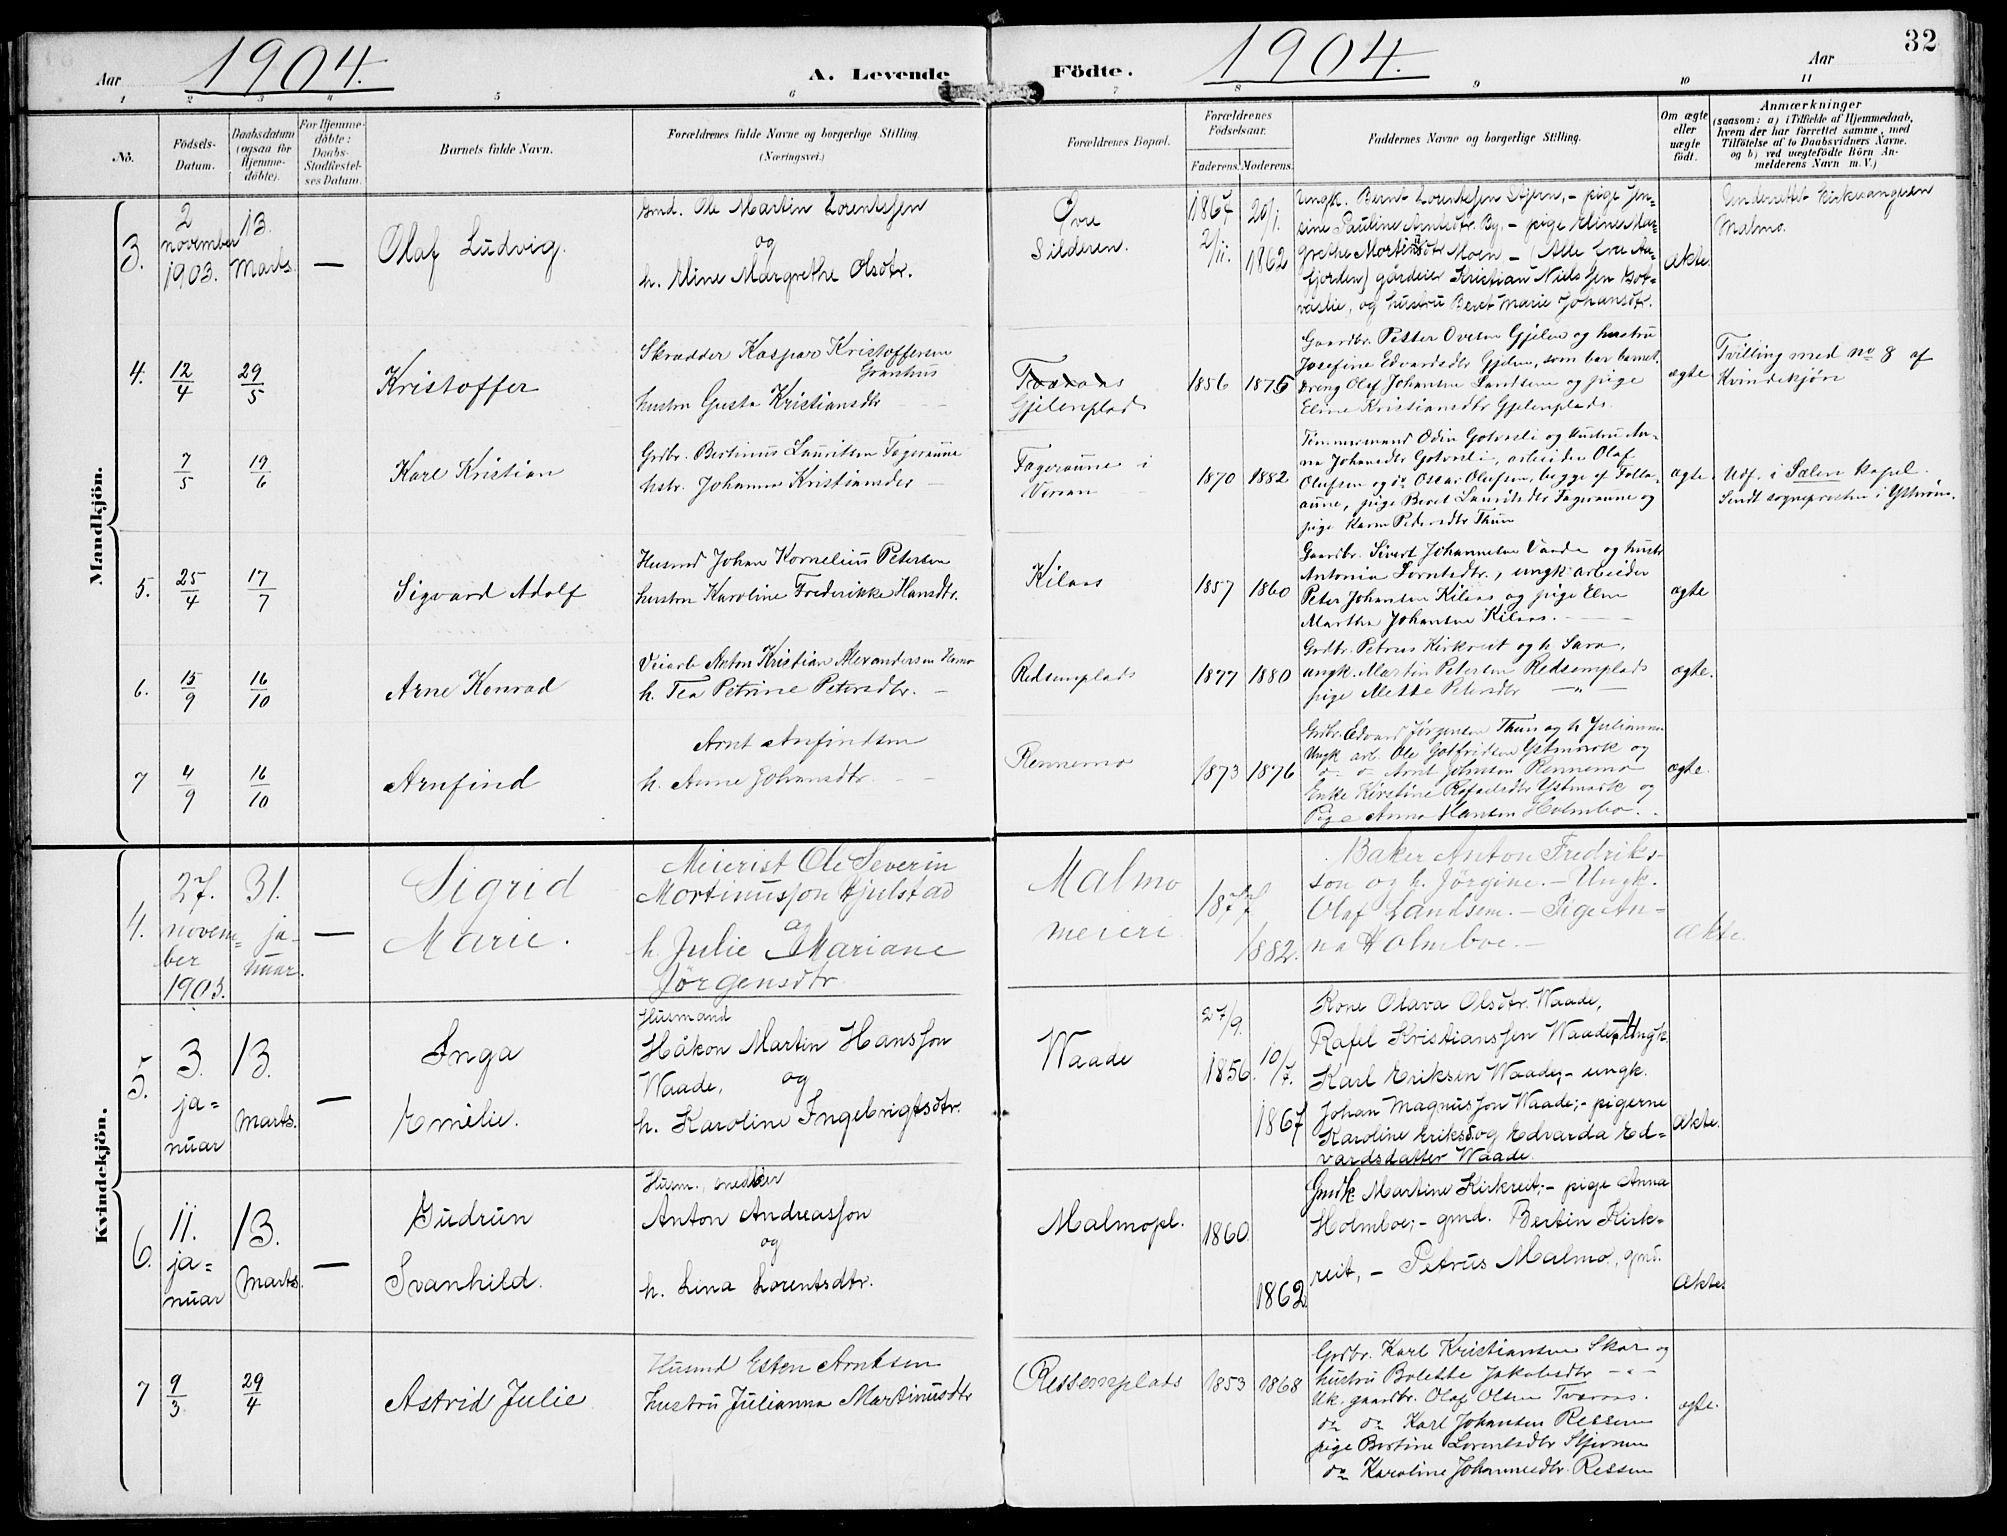 Aar 1904. A. Levende Födte. 1904. Aar 32
1 2 3 4 5 6 7 8 9 10 11
No.
Födsels-
Datum.
Daabsdatum
(ogsaa for
Hjemme-
döbte).
For Hjemme-
döbte:
Daabs-
Stadfæstel-
ses Datum.
Barnets fulde Navn.
Forældrenes fulde Navne og borgerlige Stilling.
(Næringsvei.)
Forældrenes Bopæl.
Forældrenes
Födselsaar.
Faderens. Moderens.
Faddernes Navne og borgerlige Stilling.
Om ægte
eller
uægte
födt.
Anmærkninger
(saasom: a) i Tilfælde af Hjemmedaab,
hvem der har forrettet samme, med
Tilföielse af to Daabsvidners Navne.
og b) ved uægtefödte Börn An-
melderens Navn m. V.)
Mandkjön.
3.
2
november
1903.
13.
Marts.
—
Olaf Ludvig.
Gmd. Ole Martin Lorentsjen
og
h. Eline Margrethe Olsdtr.
Øvre
Silderen.
1864
2/11.
20/1.
1862
Ungk. Bernt Lorentsjen Stjern, - pige Jen-
sine Pauline Arntsdtr. By, - pige Eline Mar-
grethe Mortinsdtr. Moen - (Alle fra Aa-
fjorden) gårdeier Kristian Nielssen Got-
vaslie, og hustru Beret Marie Johansdtr.
Ækte.
Underrettet kirkesangeren
Malmo.
4.
12/4
29/5
Kristoffer
Skrædder Kaspar Kristoffersen
Granhus
hustru Gusta Kristiansdtr
Gjelenplads
1856
1875
Gaardbr. Petter Ovesen Gjelen og hustru
Josefine Edvardsdtr Gjelen, som bar barnet.
Dreng Olaf Johansen Landsem og pige
Eline Kristiansdtr Gjelenplads.
ægte
Tvilling med no 8 af
Kvindekjön
7/5
19/6
Karl Kristian
Grdbr. Bertinus Lauritsen Fageraune
hstr. Johanna Kristiansdtr —
Fageraune i
Verran
1870
1882
Tömmermand Odin Gotvasli og hustru An-
na Johansdtr Gotvasli, arbeider Olaf
Olufsen og do Oscar Olufsen, begge af Folla-
aune, pige Beret Lauritsdtr Fageraune og
pige Karen Pedersdtr Thun
ægte.
Udf. i Sælen Kapel.
Sendt sognepresten i Ytterøen.
5.
25/4
17/7
Sigvard Adolf
Husmd Johan Kornelius Petersen
hustru Karoline Frederikke Hansdtr.
Kilaas
1857
1860
Gaardbr. Sivert Johannesen Vaade og hustr
Antonia Lorntsdtr., ungk arbeider
Peter Johansen Kilaas og pige Elen
Martha Johansen Kilaas.
ægte
6.
15/9
16/10
Arne Konrad
Veiarb Anton Kristian Alexandersen
h. Tea Petrine Petersdtr. —
Redsemplads
1877
1880
Grdbr. Petrus Kirkreit og h Sara,
ungk. Martin Petersen Redsemplads
pige Mette Petersdtr — " —
ægte.
7
4/9
16/10
Arnfind
Arnt Anfindsen
h. Anne Johansdtr.
Rennemo
1873
1876
Grdbr Edvard Jørgensen Thun og h Julianna
Ungk arb. Ole Gotfridsen Ystmark og
do do Arnt Johnsen Rennemo
Enke Kirstine Rafaelsdtr Ystmark og
Pige Anna Hansen Holmboe.
ægte.
Kvindekjön.
4.
27.
novem-
ber
1903.
31.
ja-
nuar.
—
Sigrid
Marie.
Meierist Ole Severin
Mortinusson Hjulstad
og
h. Julie Mariane
Jörgensdtr.
Malmo
meieri
1877
1882.
Baker Anton Fredriks-
son og h. Jörgine. - Ungk.
Olaf Landsem. - Pige An-
na Holmboe. -
Ækte.
5.
3.
ja-
nuar
13.
Marts.
—
Inga
Emelie.
Husmand
Håkon Martin Hansson
Waade, og
h. Karoline Ingebrigtsdtr.
Waade
27/9.
1856.
10/7.
1867
Kone Olava Olsdtr. Waade,
Rafel Kristianssen Waade, - Ungk.
Karl Eriksen Waade, - ungk.
Johan Magnusson Waade; - pigerne
Karoline Eriksd. og Edvarda Ed-
vardsdatter Waade.
Ækte.
6.
11.
ja-
nuar
13.
Marts.
—
Gudrun
Svanhild.
Husm., snedker
Anton Andreasson
og
h. Lina Lorentsdtr.
Malmopl.
1860.
1862
Gmdk. Martine Kirkreit; - pige Anna
Holmboe; - gmd. Bertin Kirk-
reit, - Petrus Malmo, gmd.
Ækte.
7
9/3
29/4
Astrid Julie
Husmd Esten Arntsen
hustru Julianna Martinusdtr
Ressemplads
1853
1868
Grdbr. Karl Kristiansen Skar og
hustru Bolette Jakobsdtr - " -
Uk. gaardbr. Olaf Olsen Tværaas.
do do Karl Johansen Ressem
pige Bertine Lorentsdtr Stjernen
do Karoline Johannesdtr. Ressem
ægte.